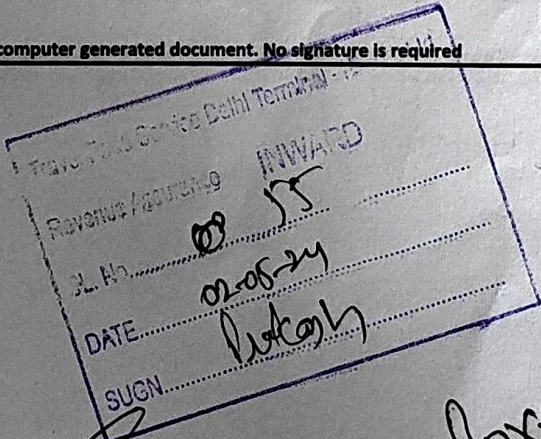 computer generated document. No signature is required
Travel Food Service Delhi Terminal -
Revenue Assurance INWARD
SL. No. 55
DATE 02-05-24
SUGN Prakash